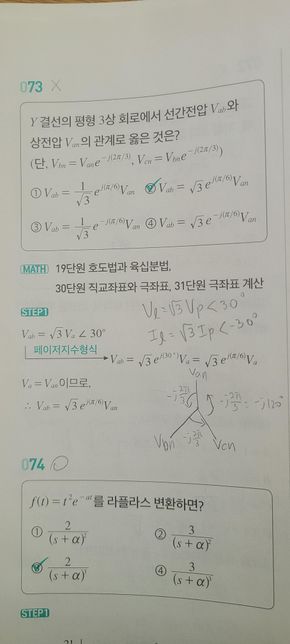 073 X
Y 결선의 평형 3상 회로에서 선간전압 V_ab와
상전압 V_an의 관계로 옳은 것은?
(단, V_bn = V_an e^{-j(2π/3)}, V_cn = V_bn e^{-j(2π/3)})
① V_ab = 1/√3 e^{j(π/6)} V_an ② V_ab = √3 e^{j(π/6)} V_an
③ V_ab = 1/√3 e^{-j(π/6)} V_an ④ V_ab = √3 e^{-j(π/6)} V_an
MATH 19단원 호도법과 육십분법,
30단원 직교좌표와 극좌표, 31단원 극좌표 계산
STEP1
V_l = √3 V_p < 30°
I_l = √3 I_p < -30°
V_ab = √3 V_a ∠ 30°
페이저지수형식
V_ab = √3 e^{j(30°)} V_a = √3 e^{j(π/6)} V_a
V_a = V_an이므로,
∴ V_ab = √3 e^{j(π/6)} V_an
V_an
-j 2π/3
-j 2π/3 = -j120°
V_bn -j 2π/3 V_cn
074 O
f(t) = t² e^{-at}를 라플라스 변환하면?
① 2/(s+α)² ② 3/(s+α)²
③ 2/(s+α)³ ④ 3/(s+α)³
STEP1